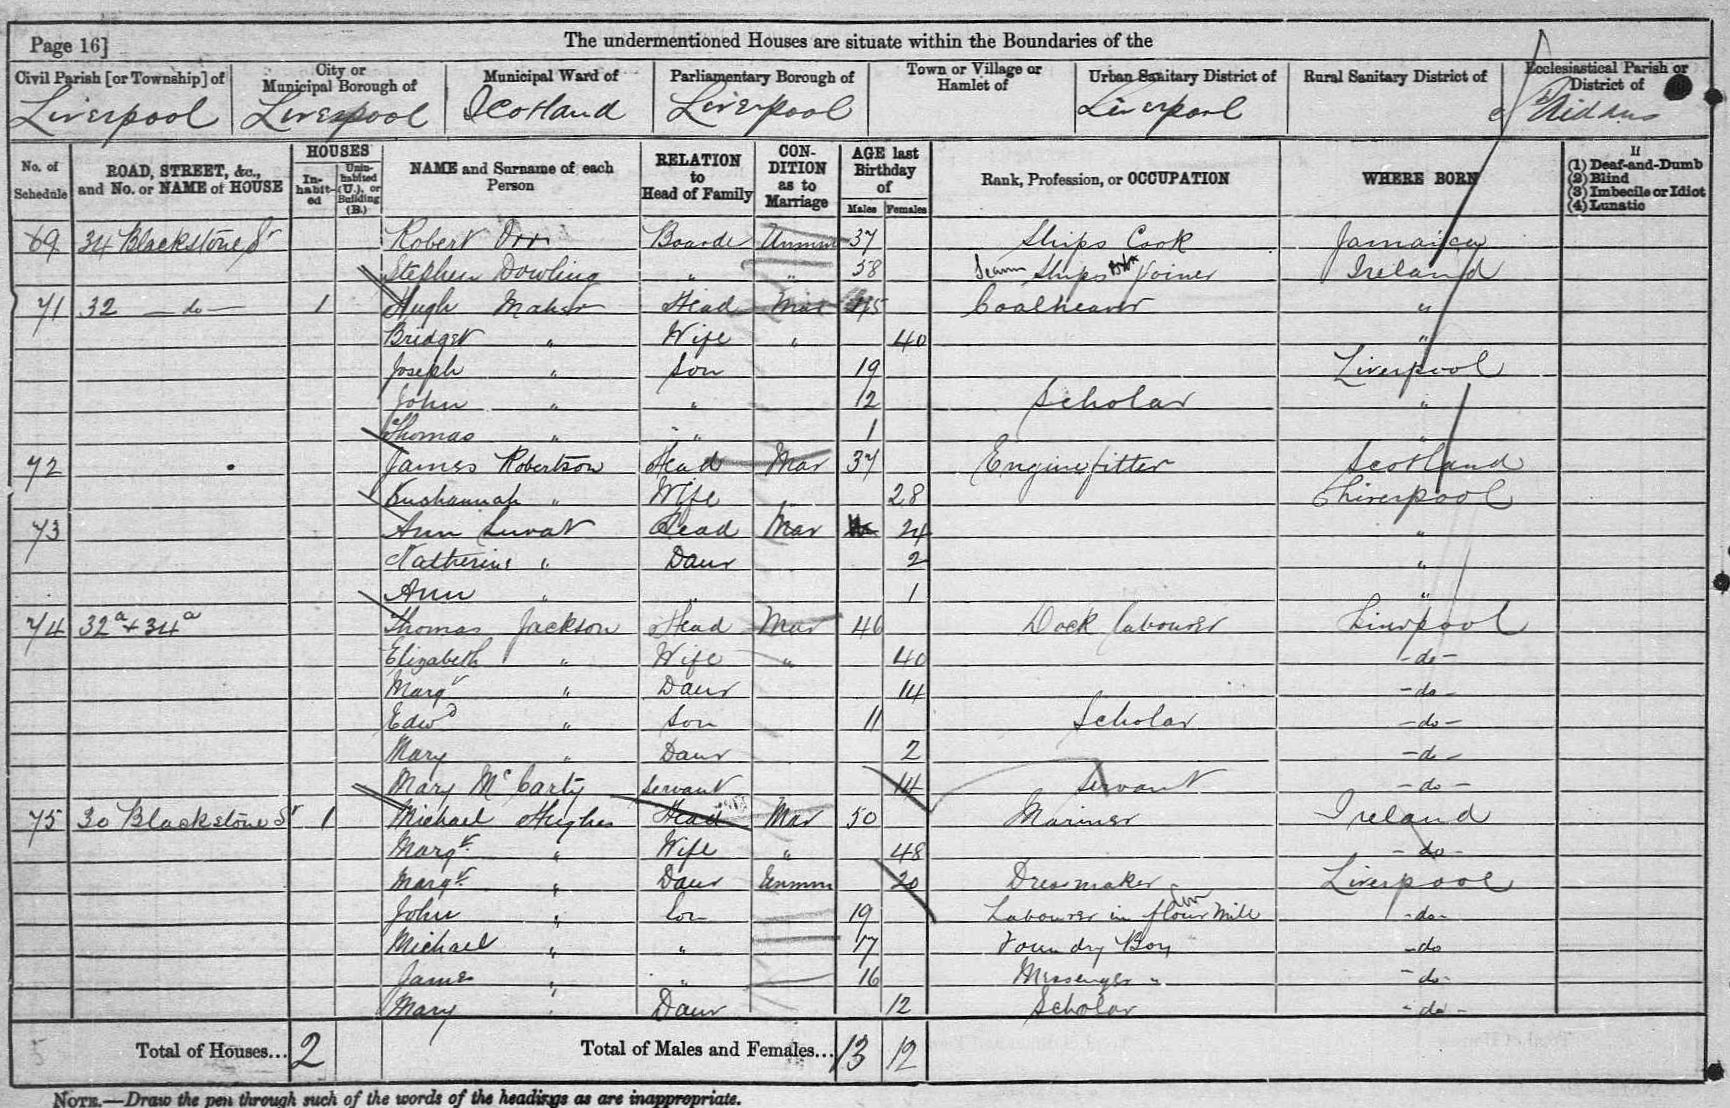 Page 16]
The undermentioned Houses are situate within the Boundaries of the
Civil Parish [or Township] of
Liverpool
City or Municipal Borough of
Liverpool
Municipal Ward of
Scotland
Parliamentary Borough of
Liverpool
Town or Village or Hamlet of
Urban Sanitary District of
Liverpool
Rural Sanitary District of
Ecclesiastical Parish or District of
No. of Schedule
ROAD, STREET, &c., and No. or NAME of HOUSE
HOUSES
In-habit-ed
Unin-habited (U.), or Building (B.)
NAME and Surname of each Person
RELATION to Head of Family
CON-DITION as to Marriage
AGE last Birthday of
Males Females
Rank, Profession, or OCCUPATION
WHERE BORN
If
(1) Deaf-and-Dumb
(2) Blind
(3) Imbecile or Idiot
(4) Lunatic
69 34 Blackstone St Robert Orr Boarder Unmm 37 Ships Cook Jamaica
Stephen Dowling " " 58 Ships Joiner Ireland
71 32 — do — 1 Hugh Maher Head Mar 45 Coalheaver "
Bridget " Wife " 40 "
Joseph " Son 19 Liverpool
John " " 12 Scholar "
Thomas " " 1 "
72 James Robertson Head Mar 37 Enginefitter Scotland
" Wife " 28 Liverpool
73 Ann Head Mar 24 "
Katherine " Daur 2 "
Ann " " 1 "
74 32a & 34a Thomas Jackson Head Mar 46 Dock Labourer Liverpool
Elizabeth " Wife " 40 - do -
Margt " Daur 14 - do -
Edwd " Son 11 Scholar - do -
Mary " Daur 2 - do -
Mary McCarty Servant 14 Servant - do -
75 30 Blackstone St 1 Michael Hughes Head Mar 50 Mariner Ireland
Margt " Wife " 48 - do -
Margt " Daur Unmm 20 Dressmaker Liverpool
John " Son 19 Labourer in flour Mill - do -
Michael " " 17 Foundry Boy - do
James " " 16 Messenger " - do -
Mary " Daur 12 Scholar - do -
Total of Houses... 2 Total of Males and Females... 13 12
NOTE.—Draw the pen through such of the words of the headings as are inappropriate.